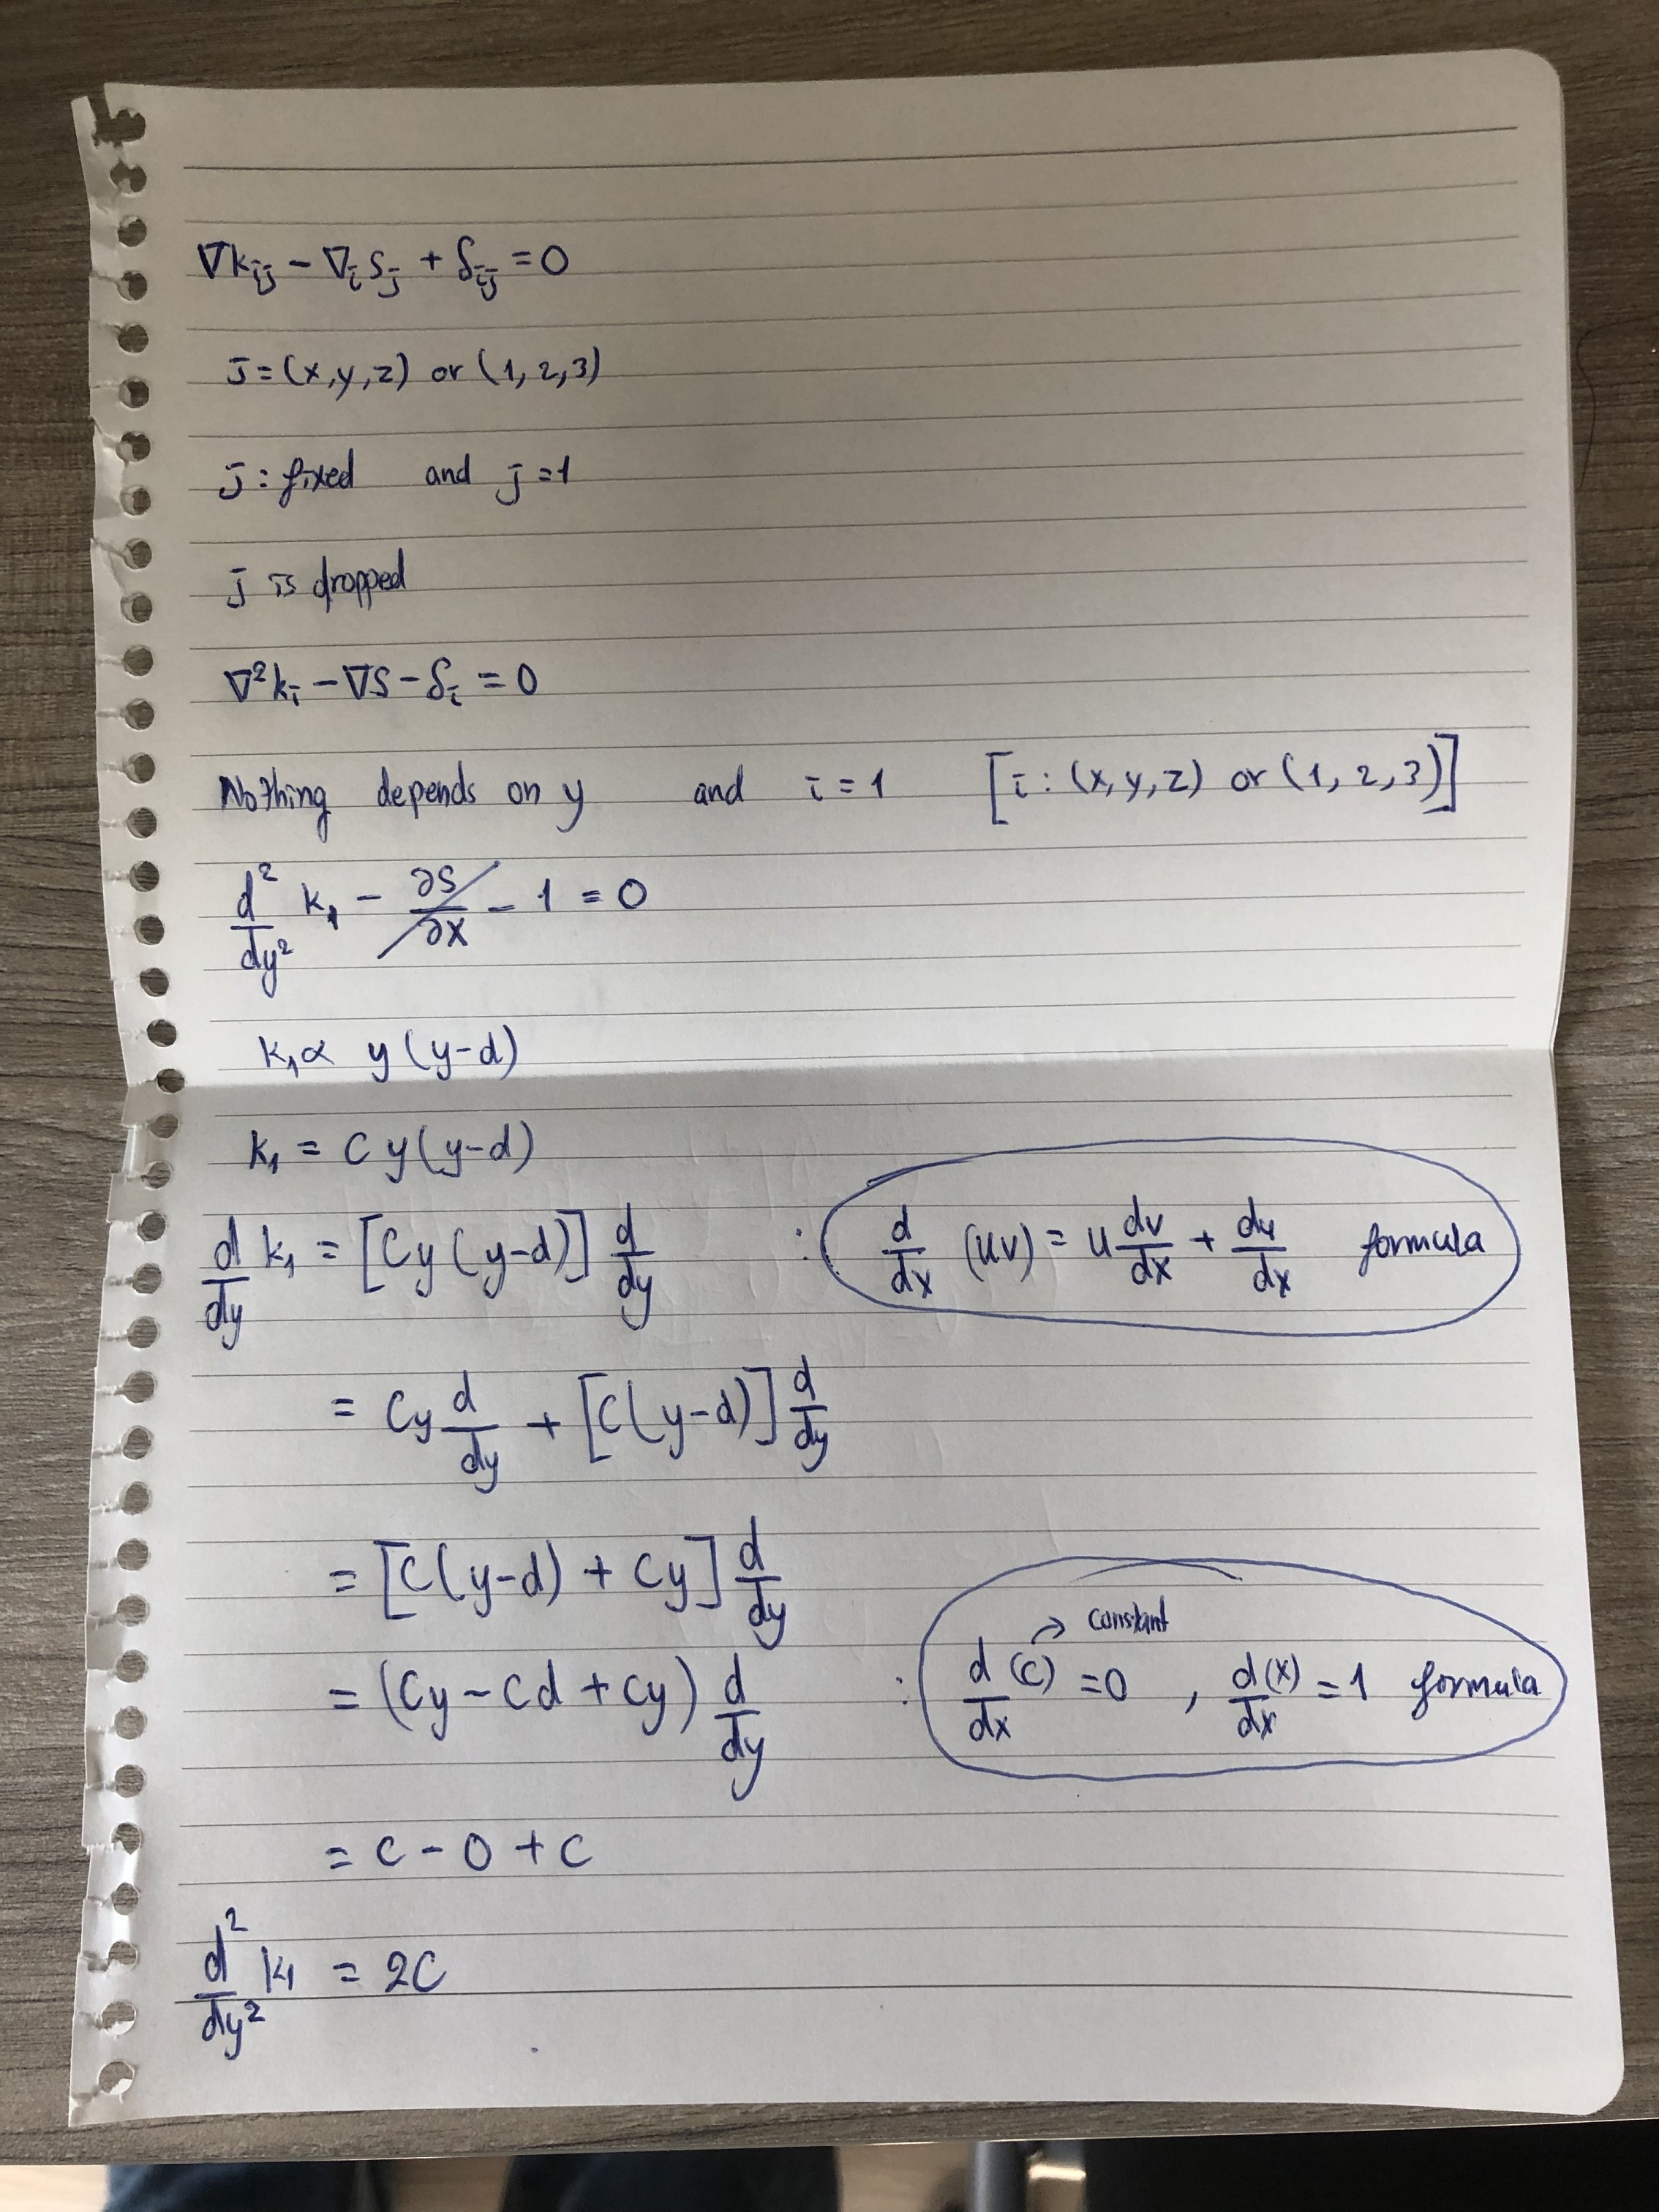 ∇k_ij − ∇_i S_j + δ_ij = 0
j = (x, y, z) or (1, 2, 3)
j : fixed and j = 1
j is dropped
∇²k_i − ∇S − δ_i = 0
Nothing depends on y and i = 1 [i : (x, y, z) or (1, 2, 3)]
d²/dy² k₁ − ∂S/∂x − 1 = 0
k₁ ∝ y(y-d)
k₁ = C y(y-d)
d/dy k₁ = [Cy(y-d)] d/dy : d/dx (uv) = u dv/dx + du/dx formula
= Cy d/dy + [C(y-d)] d/dy
= [C(y-d) + Cy] d/dy
→ constant
= (Cy − Cd + Cy) d/dy : d/dx (C) = 0 , d(x)/dx = 1 formula
= C − 0 + C
d²/dy² k₁ = 2C